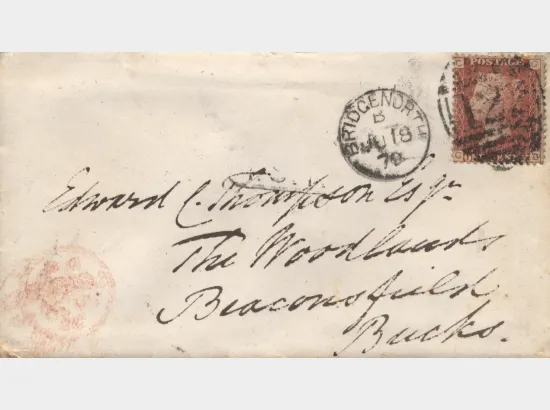 POSTAGE
BRIDGENORTH
B
JU 18
70
Edward C. Thompson Esqr
The Woodlands
Beaconsfield
Bucks.